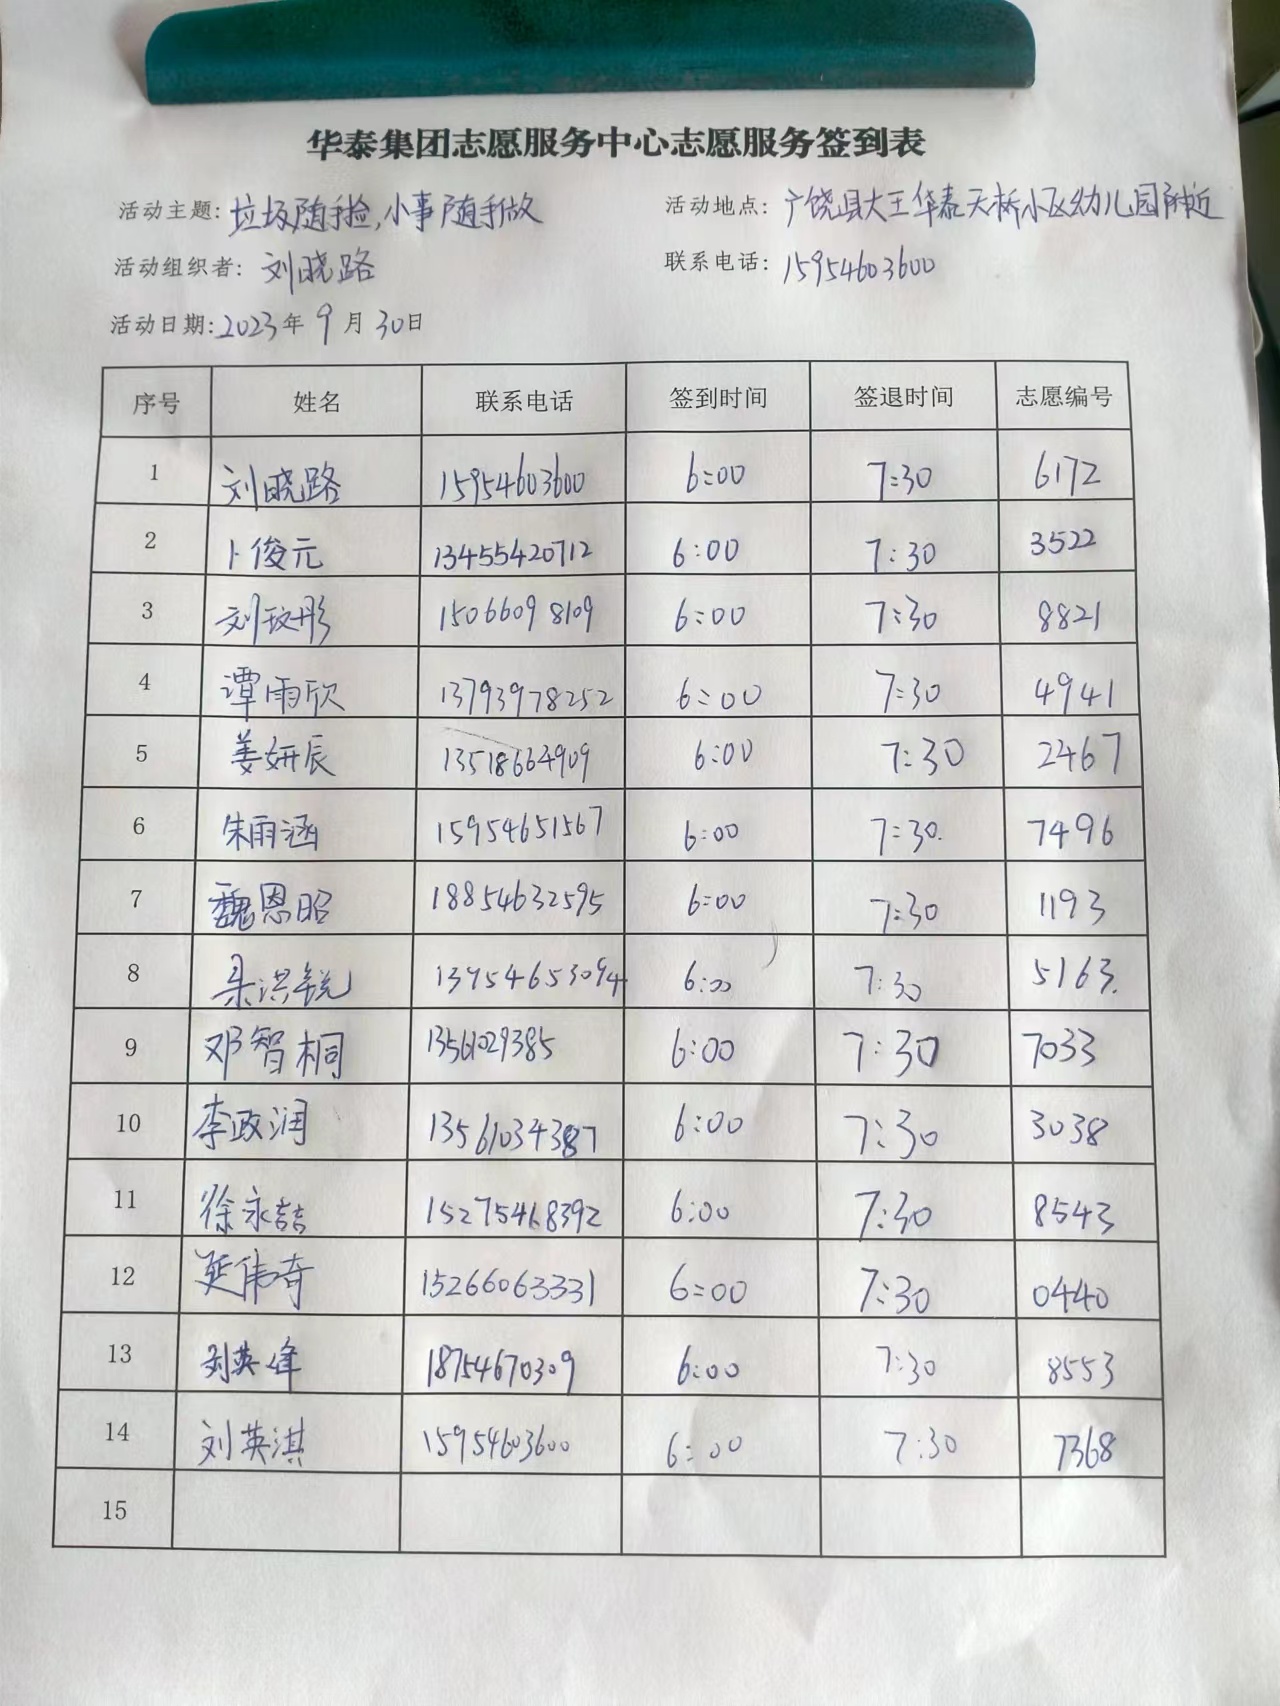 华泰集团志愿服务中心志愿服务签到表
活动主题: 垃圾随手捡,小事随手做 活动地点: 广饶县大王华泰天桥小区幼儿园附近
活动组织者: 刘晓路 联系电话: 15954603600
活动日期: 2023年9月30日
序号 姓名 联系电话 签到时间 签退时间 志愿编号
1 刘晓路 15954603600 6:00 7:30 6172
2 卜俊元 13455420712 6:00 7:30 3522
3 刘玟彤 15066098109 6:00 7:30 8821
4 谭雨欣 13793978252 6:00 7:30 4941
5 姜妍辰 13518664909 6:00 7:30 2467
6 朱雨涵 15954651567 6:00 7:30. 7496
7 魏恩昭 18854632595 6:00 7:30 1193
8 洪锐 13954653094 6:00 7:30 5163.
9 邓智桐 13561029385 6:00 7:30 7033
10 李政润 13561034387 6:00 7:30 3038
11 徐永喆 15275468392 6:00 7:30 8543
12 延伟奇 15266063331 6:00 7:30 0440
13 刘英峰 18754670309 6:00 7:30 8553
14 刘英淇 15954603600 6:00 7:30 7368
15